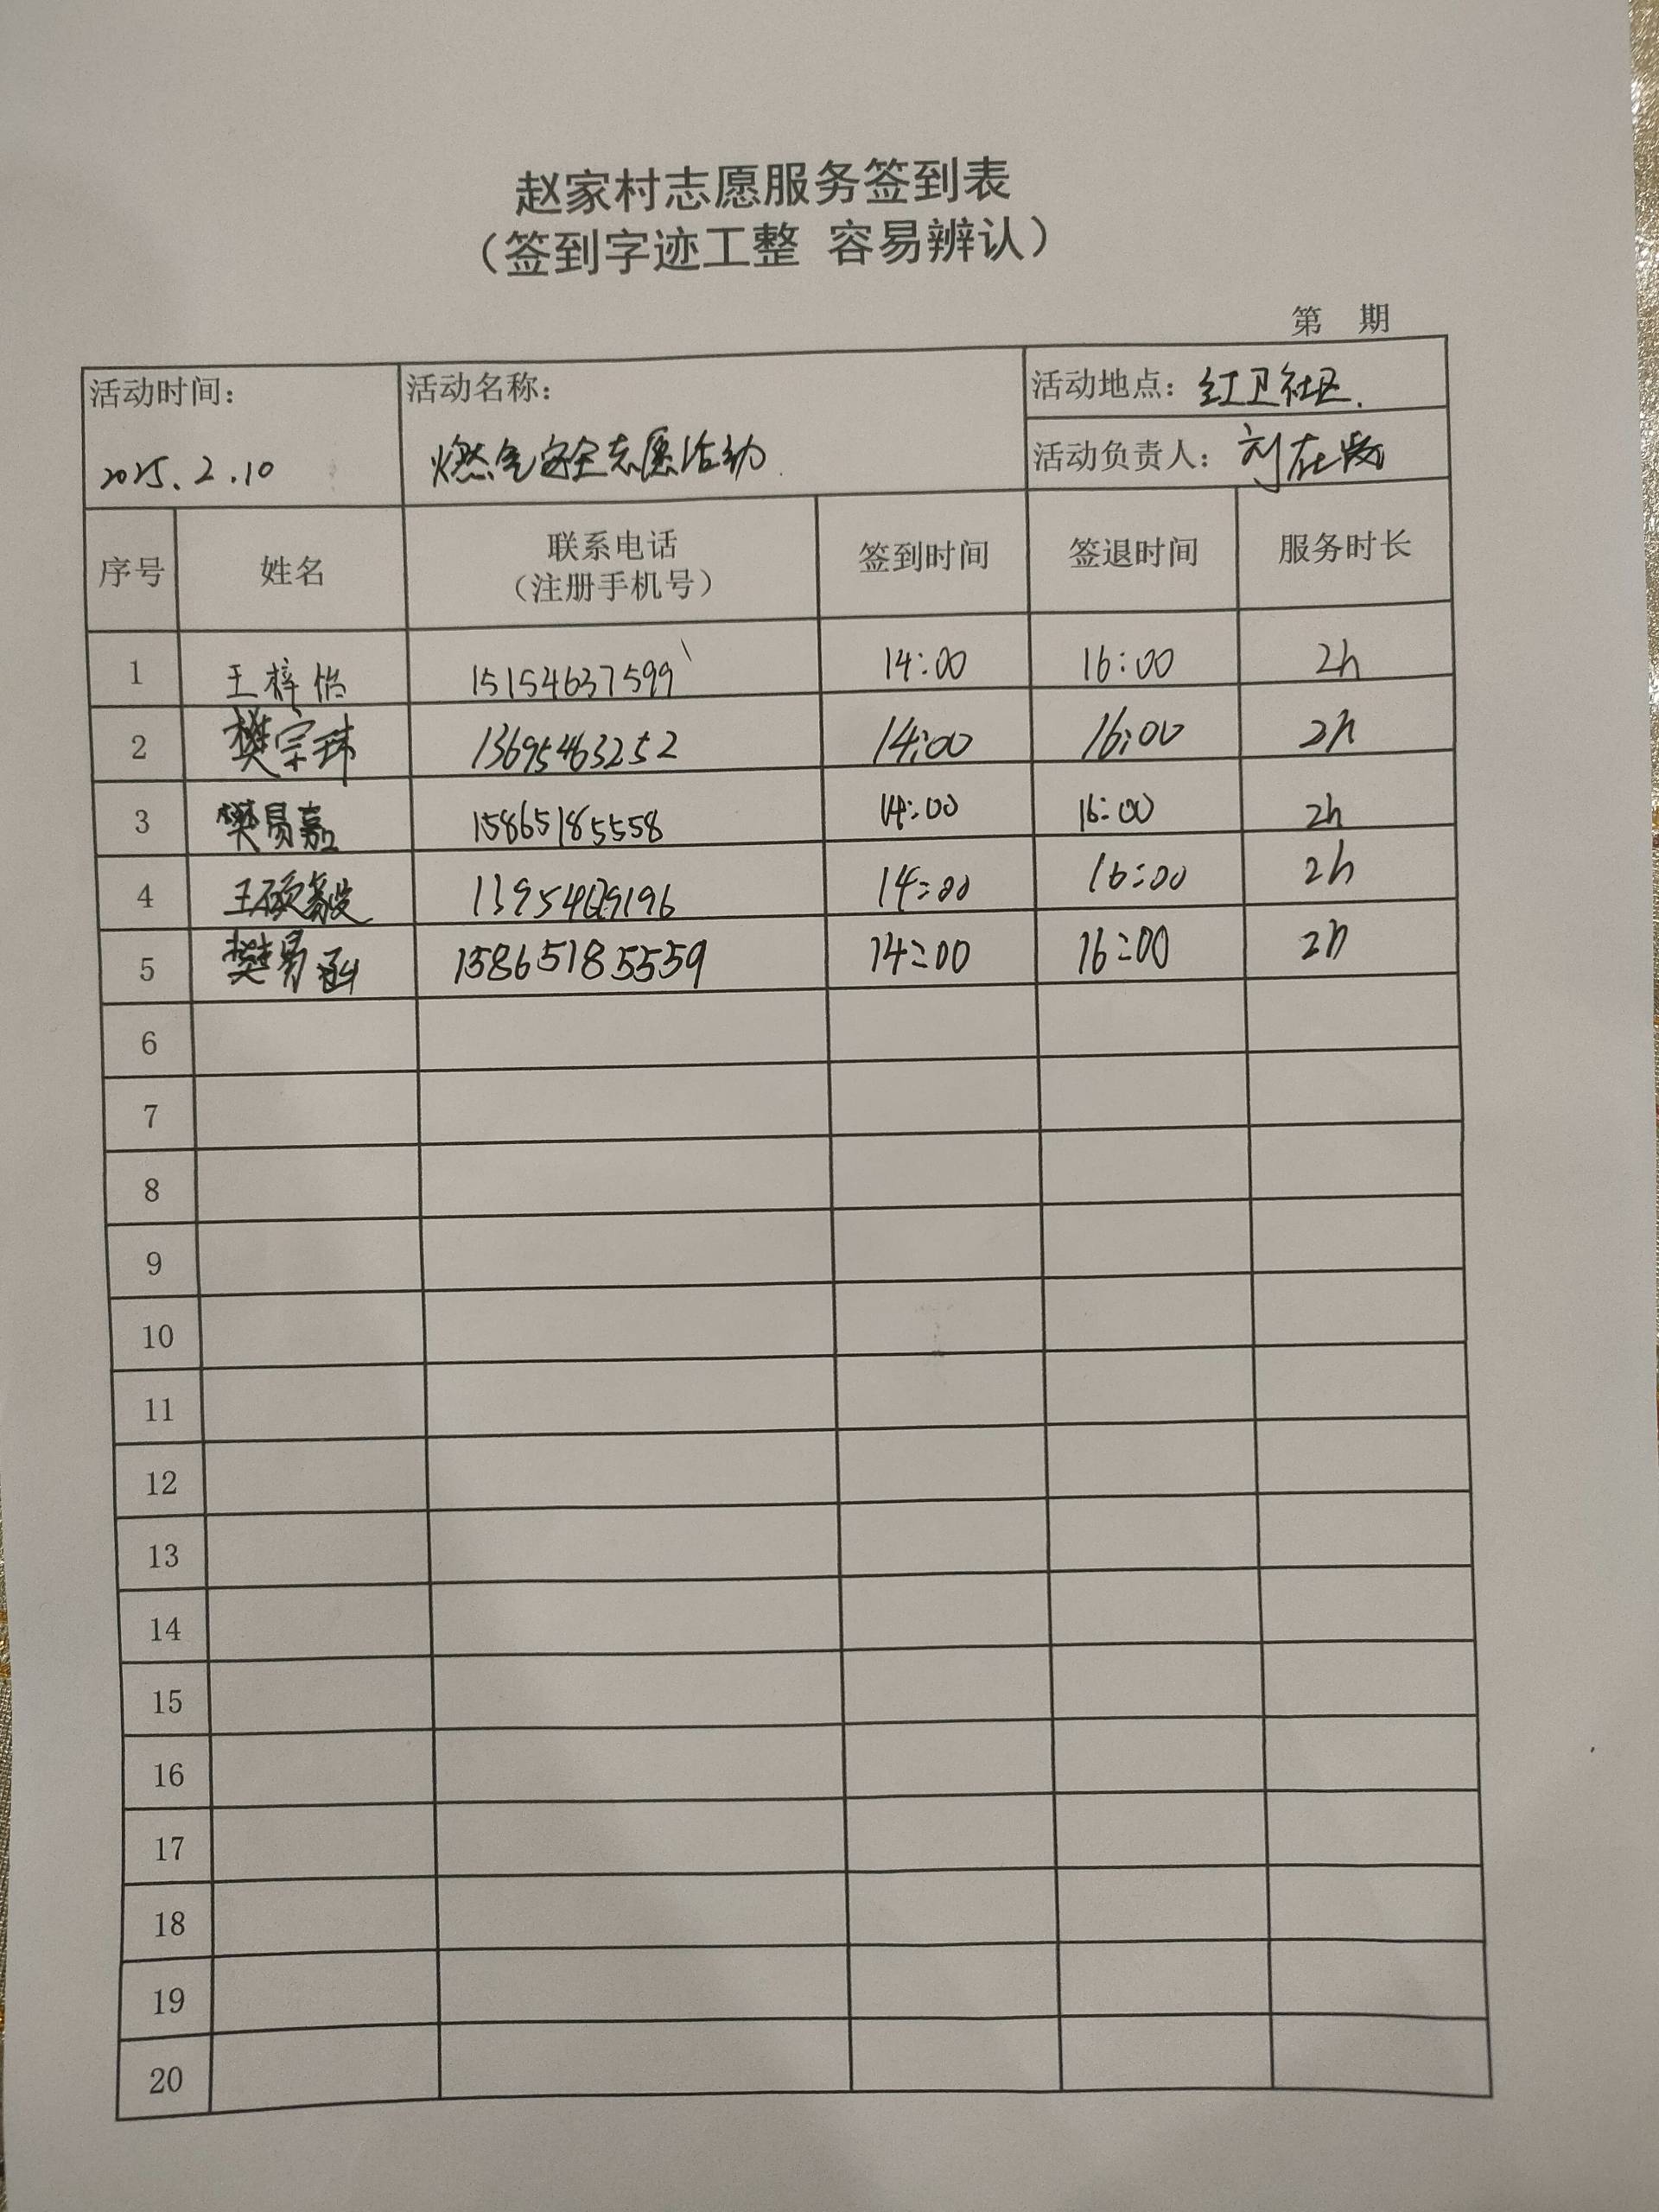 赵家村志愿服务签到表
（签到字迹工整 容易辨认）
第 期
活动时间： 活动名称： 活动地点：红卫社区.
2025.2.10 燃气安全志愿活动 活动负责人：刘在
序号 姓名 联系电话 签到时间 签退时间 服务时长
（注册手机号）
1 王梓怡 15154637599 14:00 16:00 2h
2 樊宗玮 13695463252 14:00 16:00 2h
3 樊易嘉 15865185558 14:00 16:00 2h
4 王硕毅 14:00 16:00 2h
5 樊易函 15865185559 14:00 16:00 2h
6
7
8
9
10
11
12
13
14
15
16
17
18
19
20